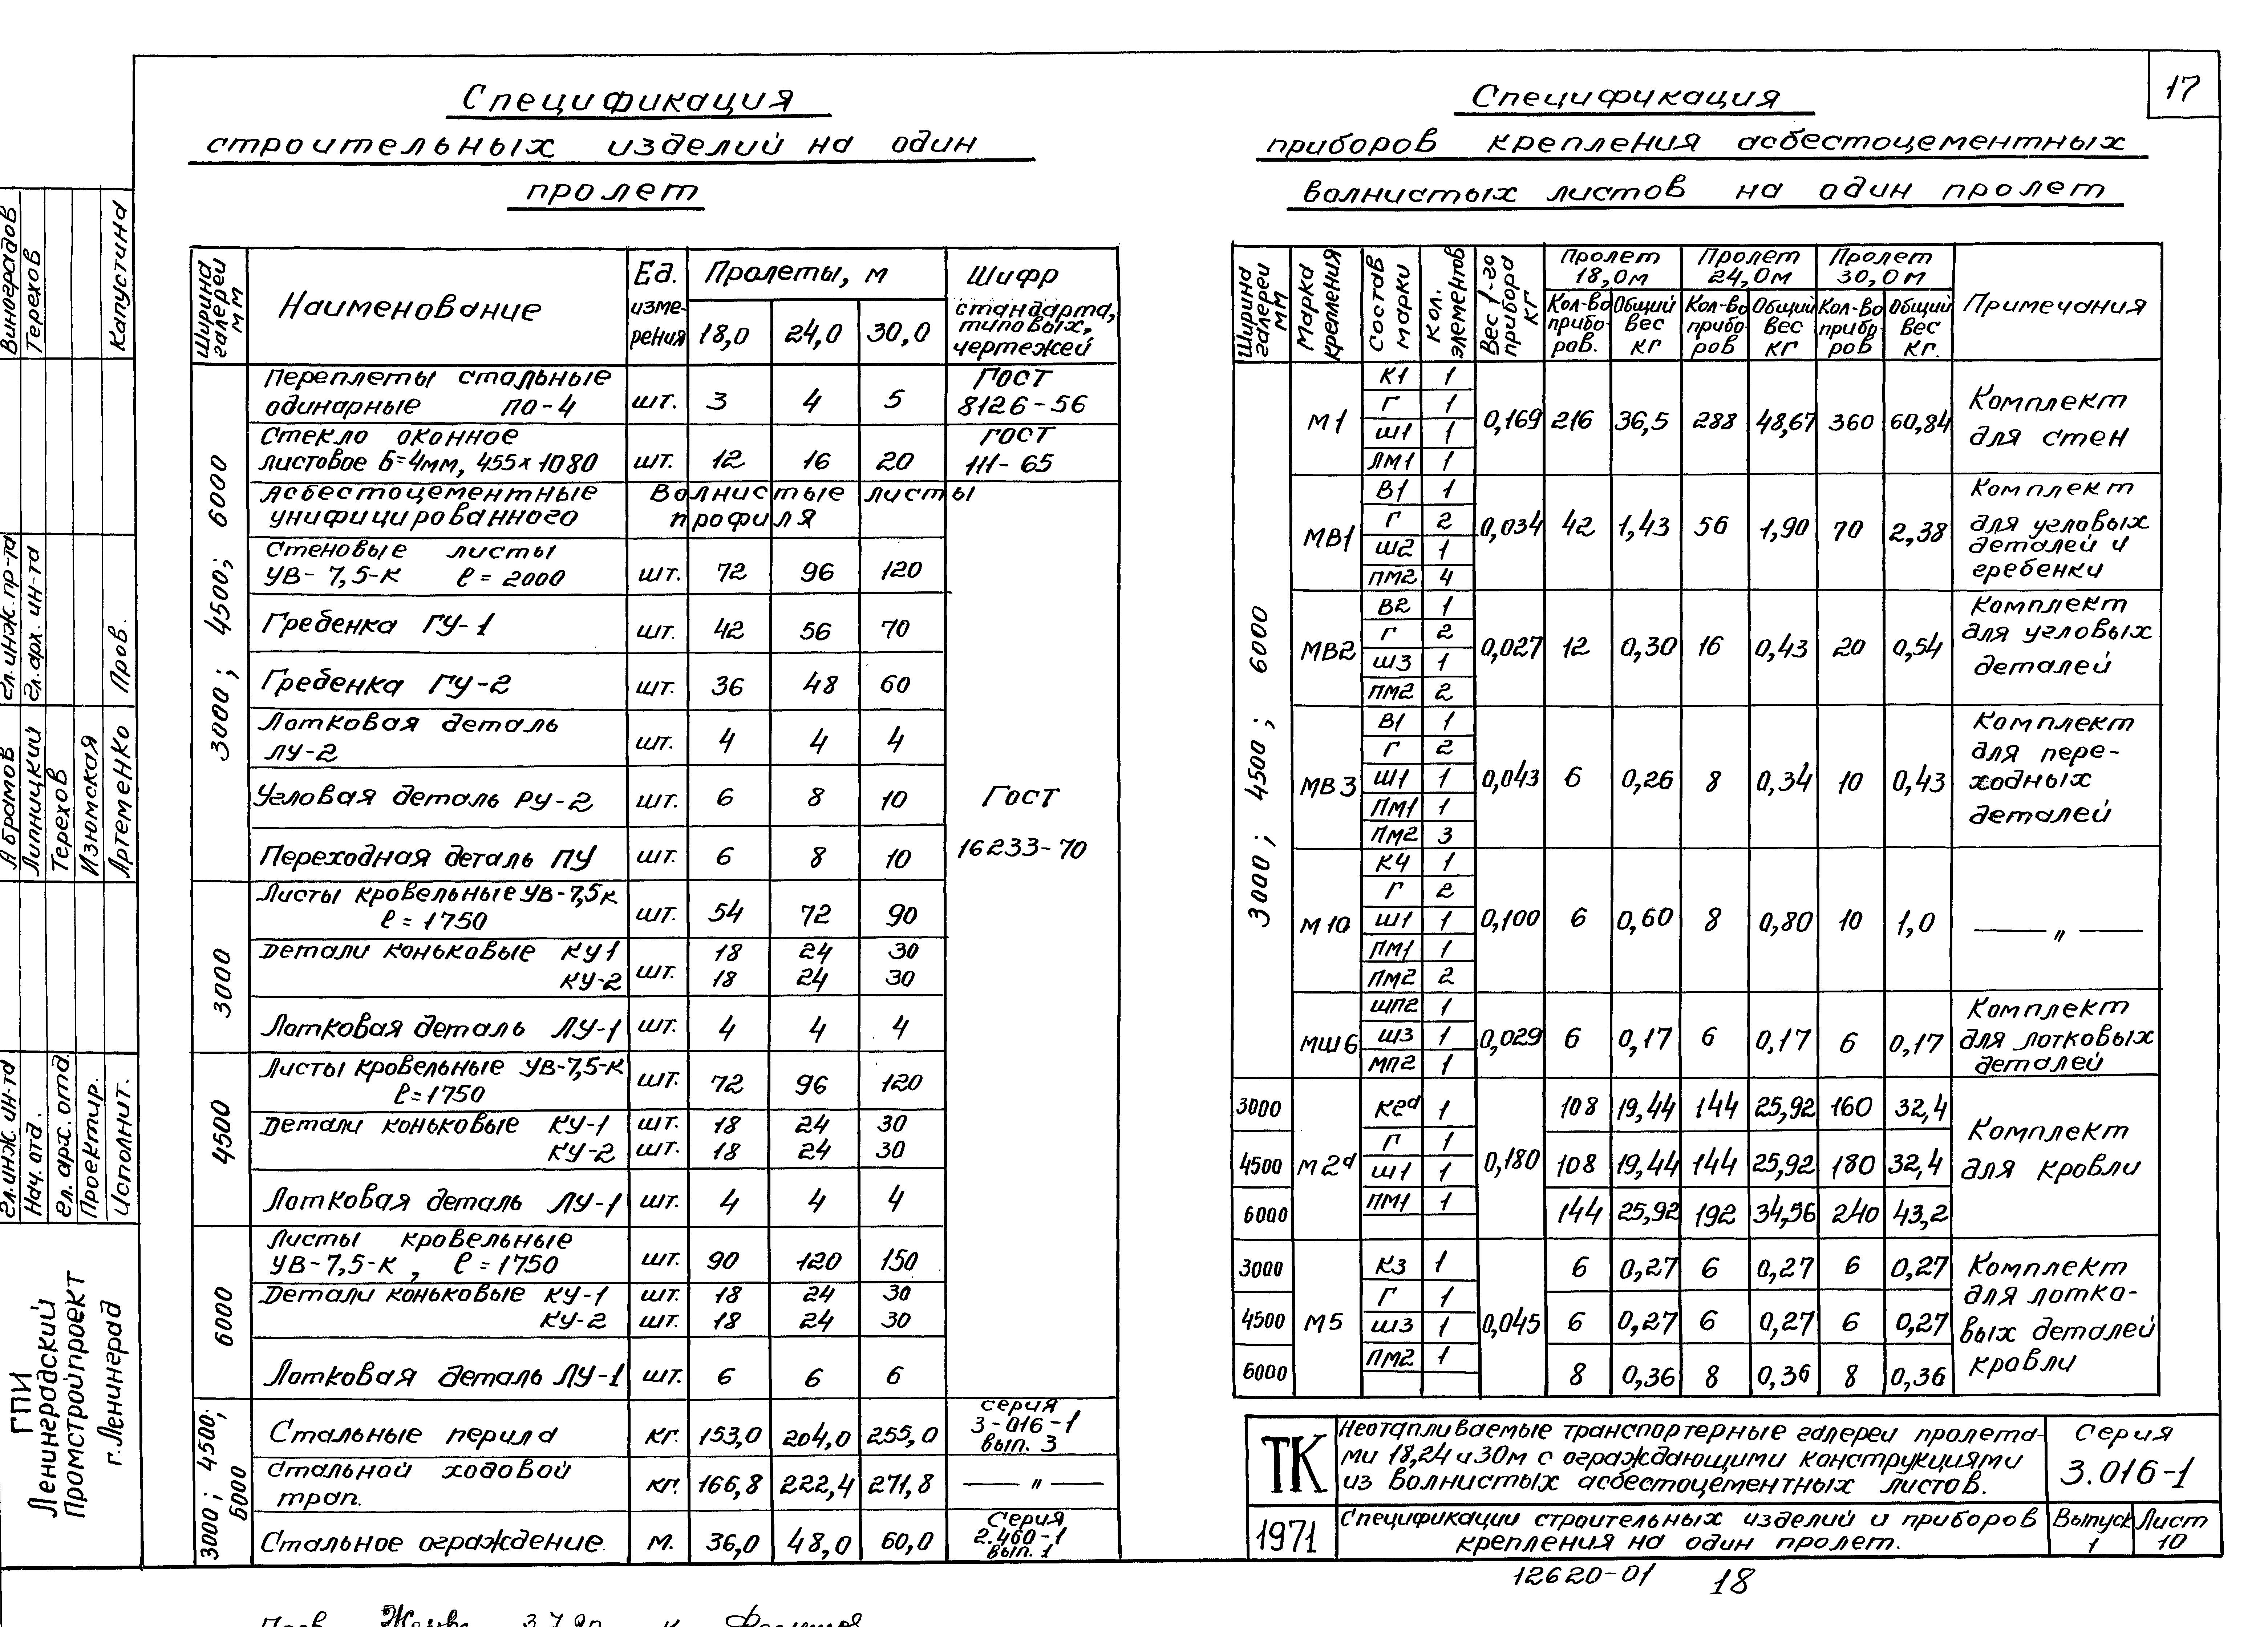 17
Спецификация
строительных изделий на один
пролет
Ширина галереи мм | Наименование | Ед. изме-рения | Пролеты, м | Шифр стандарта, типовых, чертежей
18,0 | 24,0 | 30,0
3000; 4500; 6000
Переплеты стальные одинарные ПО-4 | шт. | 3 | 4 | 5 | ГОСТ 8126-56
Стекло оконное листовое Б=4мм, 455х1080 | шт. | 12 | 16 | 20 | ГОСТ 111-65
Асбестоцементные волнистые листы
унифицированного профиля
Стеновые листы УВ-7,5-К ℓ=2000 | шт. | 72 | 96 | 120
Гребенка ГУ-1 | шт. | 42 | 56 | 70
Гребенка ГУ-2 | шт. | 36 | 48 | 60
Лотковая деталь ЛУ-2 | шт. | 4 | 4 | 4
Угловая деталь РУ-2 | шт. | 6 | 8 | 10 | Гост
Переходная деталь ПУ | шт. | 6 | 8 | 10 | 16233-70
3000
Листы кровельные УВ-7,5К ℓ=1750 | шт. | 54 | 72 | 90
Детали коньковые КУ1 | шт. | 18 | 24 | 30
КУ-2 | 18 | 24 | 30
Лотковая деталь ЛУ-1 | шт. | 4 | 4 | 4
4500
Листы кровельные УВ-7,5-К ℓ=1750 | шт. | 72 | 96 | 120
Детали коньковые КУ-1 | шт. | 18 | 24 | 30
КУ-2 | шт. | 18 | 24 | 30
Лотковая деталь ЛУ-1 | шт. | 4 | 4 | 4
6000
Листы кровельные УВ-7,5-К, ℓ=1750 | шт. | 90 | 120 | 150
Детали коньковые КУ-1 | шт. | 18 | 24 | 30
КУ-2 | шт. | 18 | 24 | 30
Лотковая деталь ЛУ-1 | шт. | 6 | 6 | 6
3000; 4500; 6000
Стальные перила | кг. | 153,0 | 204,0 | 255,0 | серия 3-016-1 вып. 3
Стальной ходовой трап. | кг. | 166,8 | 222,4 | 271,8 | — " —
Стальное ограждение. | м. | 36,0 | 48,0 | 60,0 | Серия 2.460-1 вып. 1
Спецификация
приборов крепления асбестоцементных
волнистых листов на один пролет
Ширина галереи мм | Марка крепления | Состав марки | Кол. элементов | Вес 1-го прибора кг | Пролет 18,0м | Пролет 24,0м | Пролет 30,0м | Примечания
Кол-во прибо-ров. | Общий вес кг | Кол-во прибо-ров | Общий вес кг | Кол-во прибо-ров | Общий вес кг.
3000; 4500; 6000
М1 | К1 1 | 0,169 | 216 | 36,5 | 288 | 48,67 | 360 | 60,84 | Комплект для стен
Г 1
Ш1 1
ЛМ1 1
МВ1 | В1 1 | 0,034 | 42 | 1,43 | 56 | 1,90 | 70 | 2,38 | Комплект для угловых деталей и гребенки
Г 2
Ш2 1
ПМ2 4
МВ2 | В2 1 | 0,027 | 12 | 0,30 | 16 | 0,43 | 20 | 0,54 | Комплект для угловых деталей
Г 2
Ш3 1
ПМ2 2
МВ3 | В1 1 | 0,043 | 6 | 0,26 | 8 | 0,34 | 10 | 0,43 | Комплект для пере-ходных деталей
Г 2
Ш1 1
ПМ1 1
ПМ2 3
М10 | К4 1 | 0,100 | 6 | 0,60 | 8 | 0,80 | 10 | 1,0 | — " —
Г 2
Ш1 1
ПМ1 1
ПМ2 2
МШ6 | ШП2 1 | 0,029 | 6 | 0,17 | 6 | 0,17 | 6 | 0,17 | Комплект для лотковых деталей
Ш3 1
МП2 1
М2а | К2а 1 | 0,180 | Комплект для кровли
Г 1
Ш1 1
ПМ1 1
3000 | 108 | 19,44 | 144 | 25,92 | 160 | 32,4
4500 | 108 | 19,44 | 144 | 25,92 | 180 | 32,4
6000 | 144 | 25,92 | 192 | 34,56 | 240 | 43,2
М5 | К3 1 | 0,045 | Комплект для лотко-вых деталей кровли
Г 1
Ш3 1
ПМ2 1
3000 | 6 | 0,27 | 6 | 0,27 | 6 | 0,27
4500 | 6 | 0,27 | 6 | 0,27 | 6 | 0,27
6000 | 8 | 0,36 | 8 | 0,36 | 8 | 0,36
ТК
Неотапливаемые транспортерные галереи пролета-
ми 18,24 и 30м с ограждающими конструкциями
из волнистых асбестоцементных листов.
Серия
3.016-1
1971
Спецификации строительных изделий и приборов
крепления на один пролет.
Выпуск 1
Лист 10
12620-01 18
Виноградов
Терехов
Капустина
Гл.инж.пр-та
Гл.арх. ин-та
Пров.
Абрамов
Липницкий
Терехов
Изюмская
Артеменко
Гл.инж. ин-та
Нач. отд.
Гл. арх. отд.
Проектир.
Исполнит.
ГПИ
Ленинградский
Промстройпроект
г.Ленинград